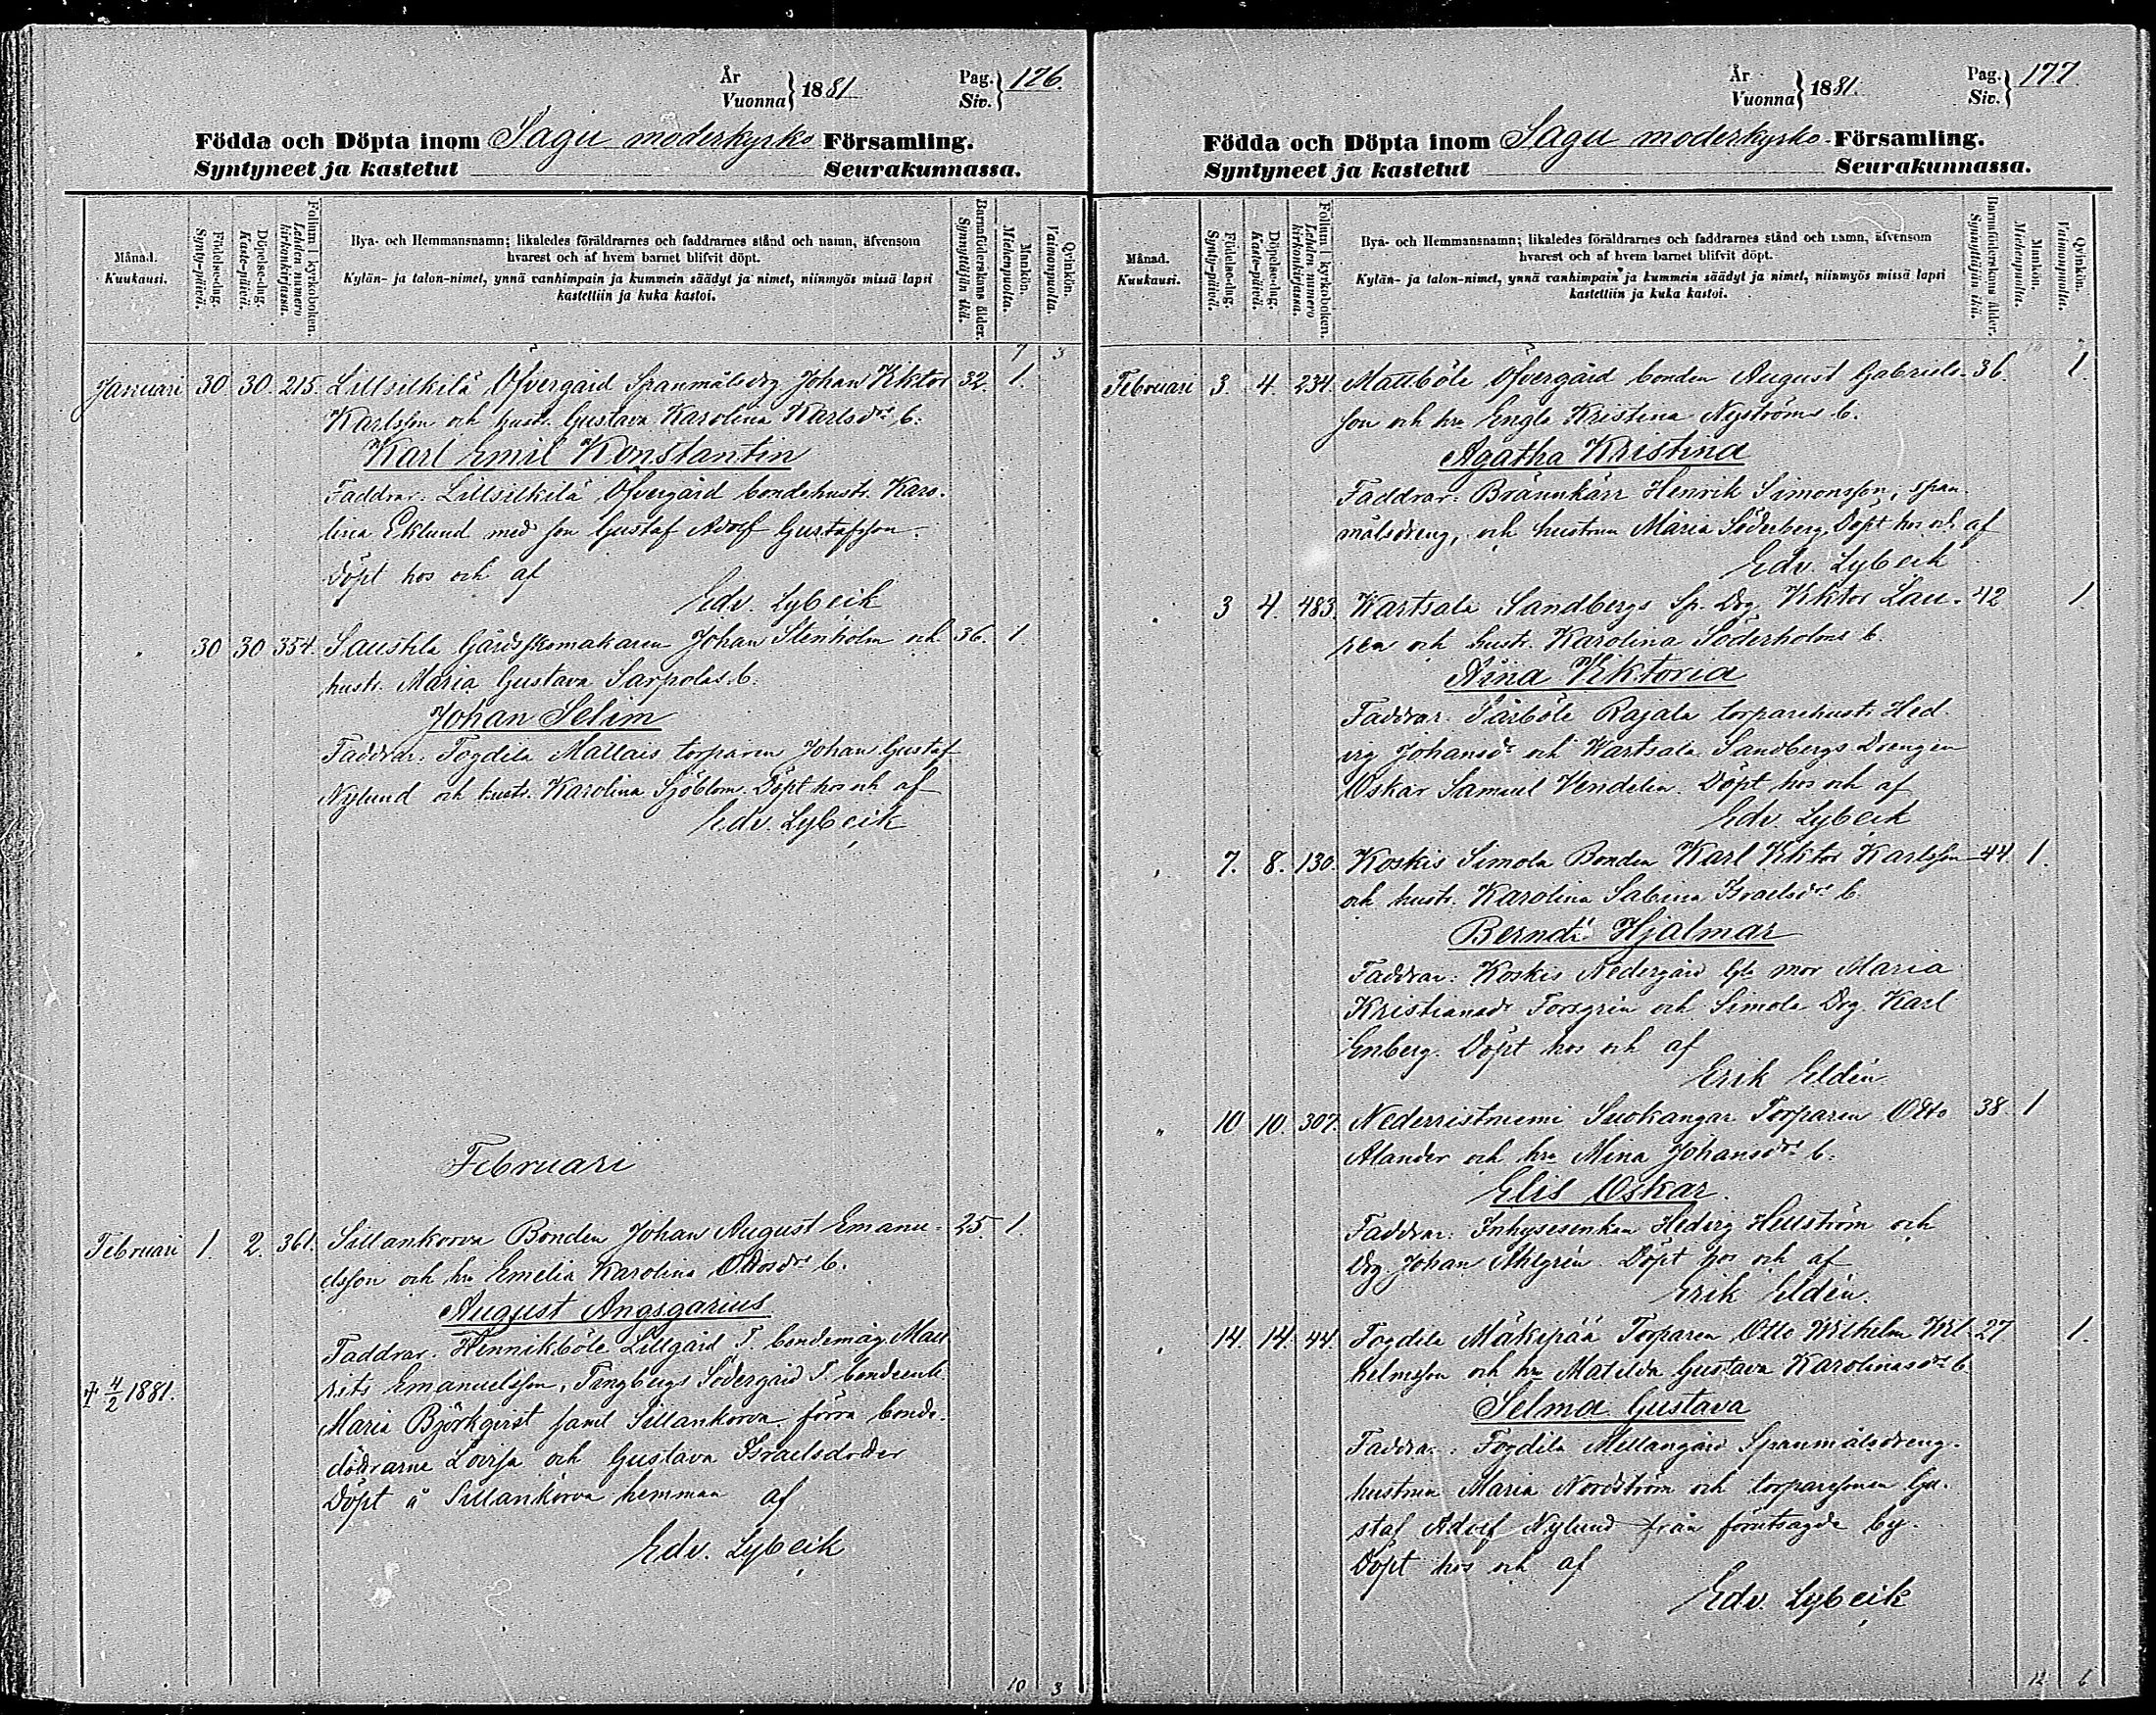 År
Vuonna } 1881
Pag.
Siv. } 176.
Födda och Döpta inom Sagu moderkyrko Församling.
Syntyneet ja kastetut Seurakunnassa.
Månad.
Kuukausi.
Födelse-dag.
Synty-päivä.
Döpelse-dag.
Kaste-päivä.
Folium i kyrkoboken.
Lehden numero kirkonkirjassa.
Bya- och Hemmansnamn; likaledes föräldrarnes och faddrarnes stånd och namn, äfvensom
hvarest och af hvem barnet blifvit döpt.
Kylän- ja talon-nimet, ynnä vanhimpain ja kummein säädyt ja nimet, niinmyös missä lapsi
kastettiin ja kuka kastoi.
Barnaföderskans ålder.
Synnyttäjän ikä.
Mankön.
Miehenpuolta.
Qvinkön.
Vaimonpuolta.
7 3
Januari 30. 30. 215. Lillsilkilä Öfvergård Spanmålsdrg Johan Viktor 32. 1.
Karlsson och hustr. Gustava Karolina Karlsdr b.
Karl Emil Konstantin
Faddrar: Lillsilkilä Öfvergård bondehustr. Karo-
lina Eklund med son Gustaf Adolf Gustafsson.
Döpt hos och af
Edv. Lybeck
" 30 30 354. Saustila Gårdsskomakaren Johan Stenholm och 36. 1.
hustr. Maria Gustava Sarpolas b.
Johan Selim
Faddrar: Fogdila Mattais torparen Johan Gustaf
Nylund och hustr. Karolina Sjöblom. Döpt hos och af
Edv. Lybeck
Februari
Februari 1. 2. 361. Sillankorva Bonden Johan August Emanu- 25. 1.
elsson och hu Emelia Karolina Ottosdr b.
August Angsgarius
Faddrar: Hennikböle Lillgård F. bondemåg Mau
rits Emanuelsson, Tingbergs Södergård F. bondeenk
† 4/2 1881.
Maria Björkqvist samt Sillankorva förra bonde-
döttrarne Lovisa och Gustava Israelsdotter
Döpt å Sillankorva hemman af
Edv. Lybeck
10 3
År
Vuonna } 1881.
Pag.
Siv. } 177
Födda och Döpta inom Sagu moderkyrko- Församling.
Syntyneet ja kastetut Seurakunnassa.
Månad.
Kuukausi.
Födelse-dag.
Synty-päivä.
Döpelse-dag.
Kaste-päivä.
Folium i kyrkoboken.
Lehden numero kirkonkirjassa.
Bya- och Hemmansnamn; likaledes föräldrarnes och faddrarnes stånd och namn, äfvensom
hvarest och af hvem barnet blifvit döpt.
Kylän- ja talon-nimet, ynnä vanhimpain ja kummein säädyt ja nimet, niinmyös missä lapsi
kastettiin ja kuka kastoi.
Barnaföderskans ålder.
Synnyttäjän ikä.
Mankön.
Miehenpuolta.
Qvinkön.
Vaimonpuolta.
Februari 3. 4. 234. Mattböle Öfvergård bonden August Gabriels- 36. 1.
son och hu Engla Kristina Nyströms b.
Agatha Kristina
Faddrar: Brännkärr Henrik Simonsson, span-
målsdreng, och hustrun Maria Söderberg. Döpt hos och af
Edv. Lybeck
" 3 4. 483. Kartsala Sandbergs Sp. Drg. Viktor Lau- 42 1.
ren och hustr. Karolina Söderholms b.
Aina Viktoria
Faddrar: Pärböle Rajala torparehustr Hed
vig Johansdr och Kartsala Sandbergs Drengen
Oskar Samuel Vendelin. Döpt hos och af
Edv. Lybeck
" 7. 8. 130. Koskis Simola Bonden Karl Viktor Karlsson 44 1.
och hustr. Karolina Sabina Israelsdr b
Berndt Hjalmar
Faddrar: Koskis Nedergård mor Maria
Kristiansdr Forsgrén och Simola Drg. Karl
Enberg. Döpt hos och af
Erik Eldén
" 10 10. 307. Nederristniemi Suokangar Torparen Otto 38. 1
Alander och hu Mina Johansdr b.
Elis Oskar
Faddrar: Inhysesenkan Hedvig Hellström och
Drg. Johan Ahlgrén. Döpt hos och af
Erik Eldén.
" 14. 14. 44. Fogdila Mäkipää Torparen Otto Wilhelm Wil 27 1.
helmsson och hu Matilda Gustava Karolinasdr b
Selma Gustava
Faddrar: Fogdila Mellangård Spanmålsdreng-
hustrun Maria Nordström och torparesonen Gu-
staf Adolf Nylund från förutsagde by.
Döpt hos och af
Edv. Lybeck
12 6